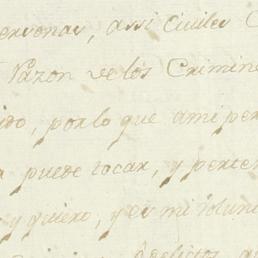 ersonas, assi Civiles C
Razon de los Crimine
ido, por lo que a mi per
puede tocar, y perten
y quiero, y es mi volun
delictos